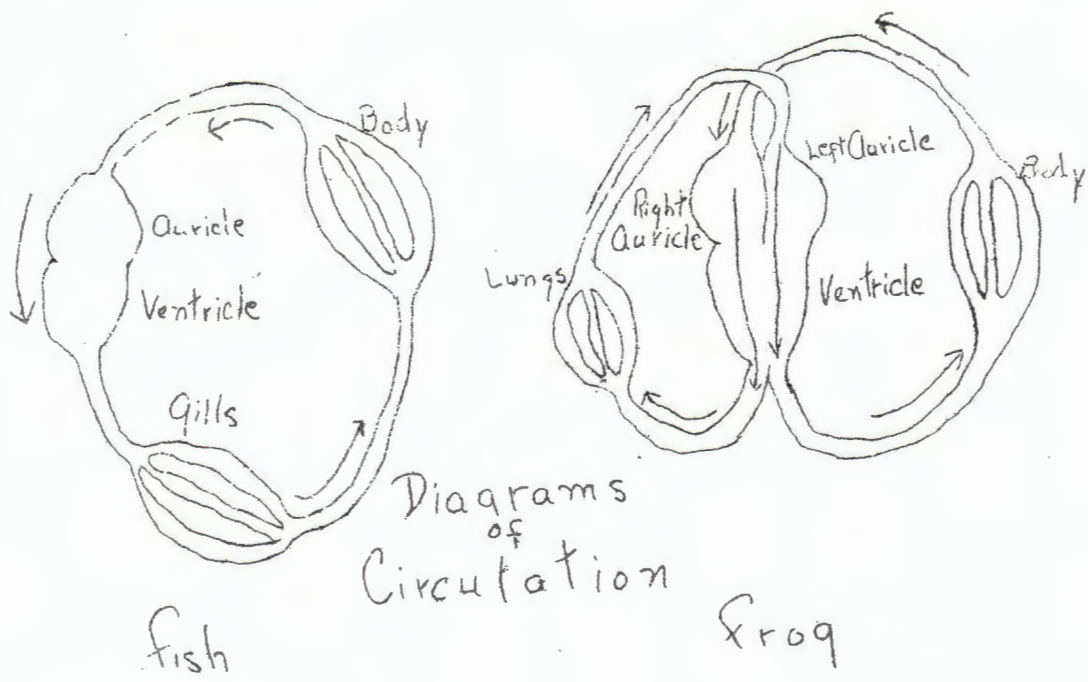 Body
Auricle
Ventricle
Gills
Left Auricle
Body
Right
Auricle
Lungs
Ventricle
Diagrams
of
Circulation
fish
frog